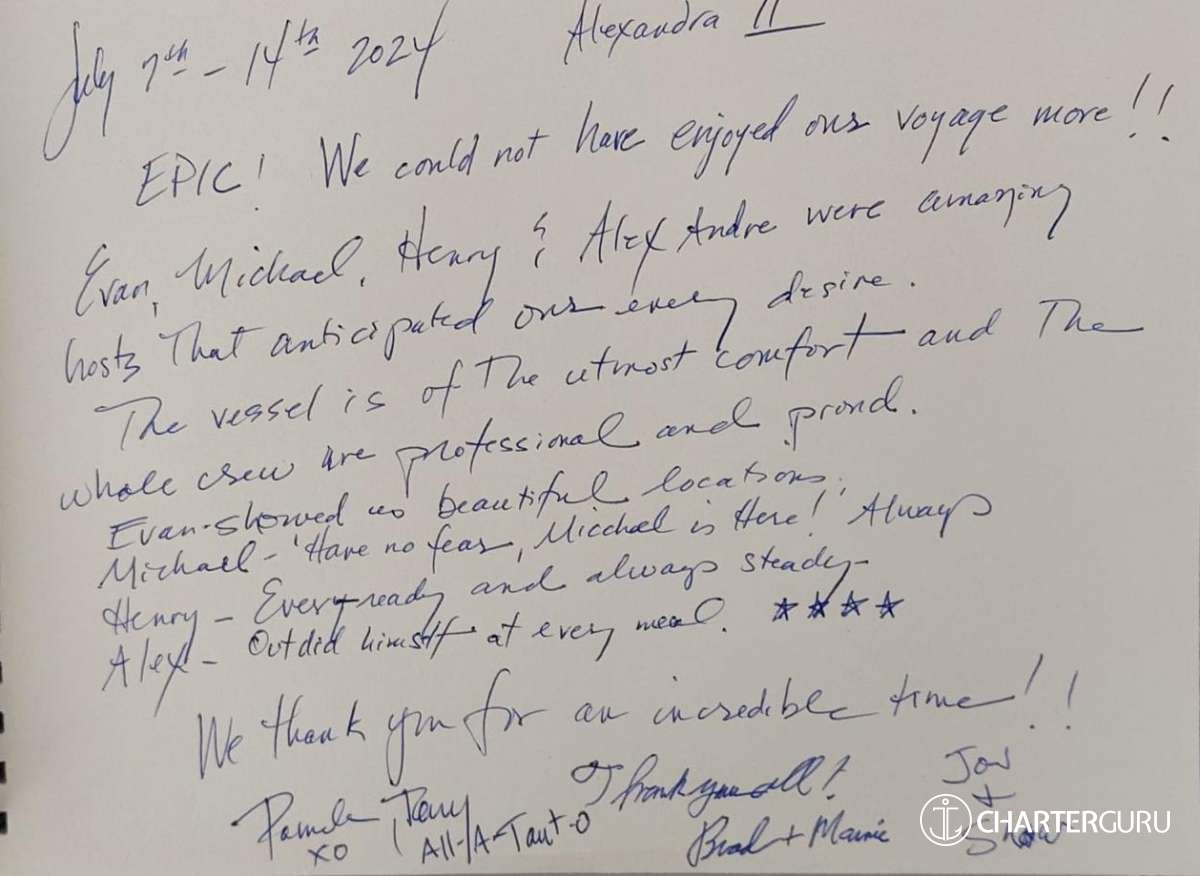 July 7th - 14th 2024 Alexandra II
EPIC! We could not have enjoyed our voyage more!!
Evan, Michael, Henry & Alex Andre were amazing
hosts That anticipated our every desire.
The vessel is of The utmost comfort and The
whole crew are professional and proud.
Evan - showed us beautiful locations.
Michael - 'Have no fear, Micchael is Here! Always
Henry - Every-ready and always steady -
Alex - Outdid himself at every meal. ☆☆☆☆
We thank you for an incredible time!!
Pamela Terry Thank you all! Jon
XO All-A-Taut-O Brad + Marnie +
CHARTERGURU